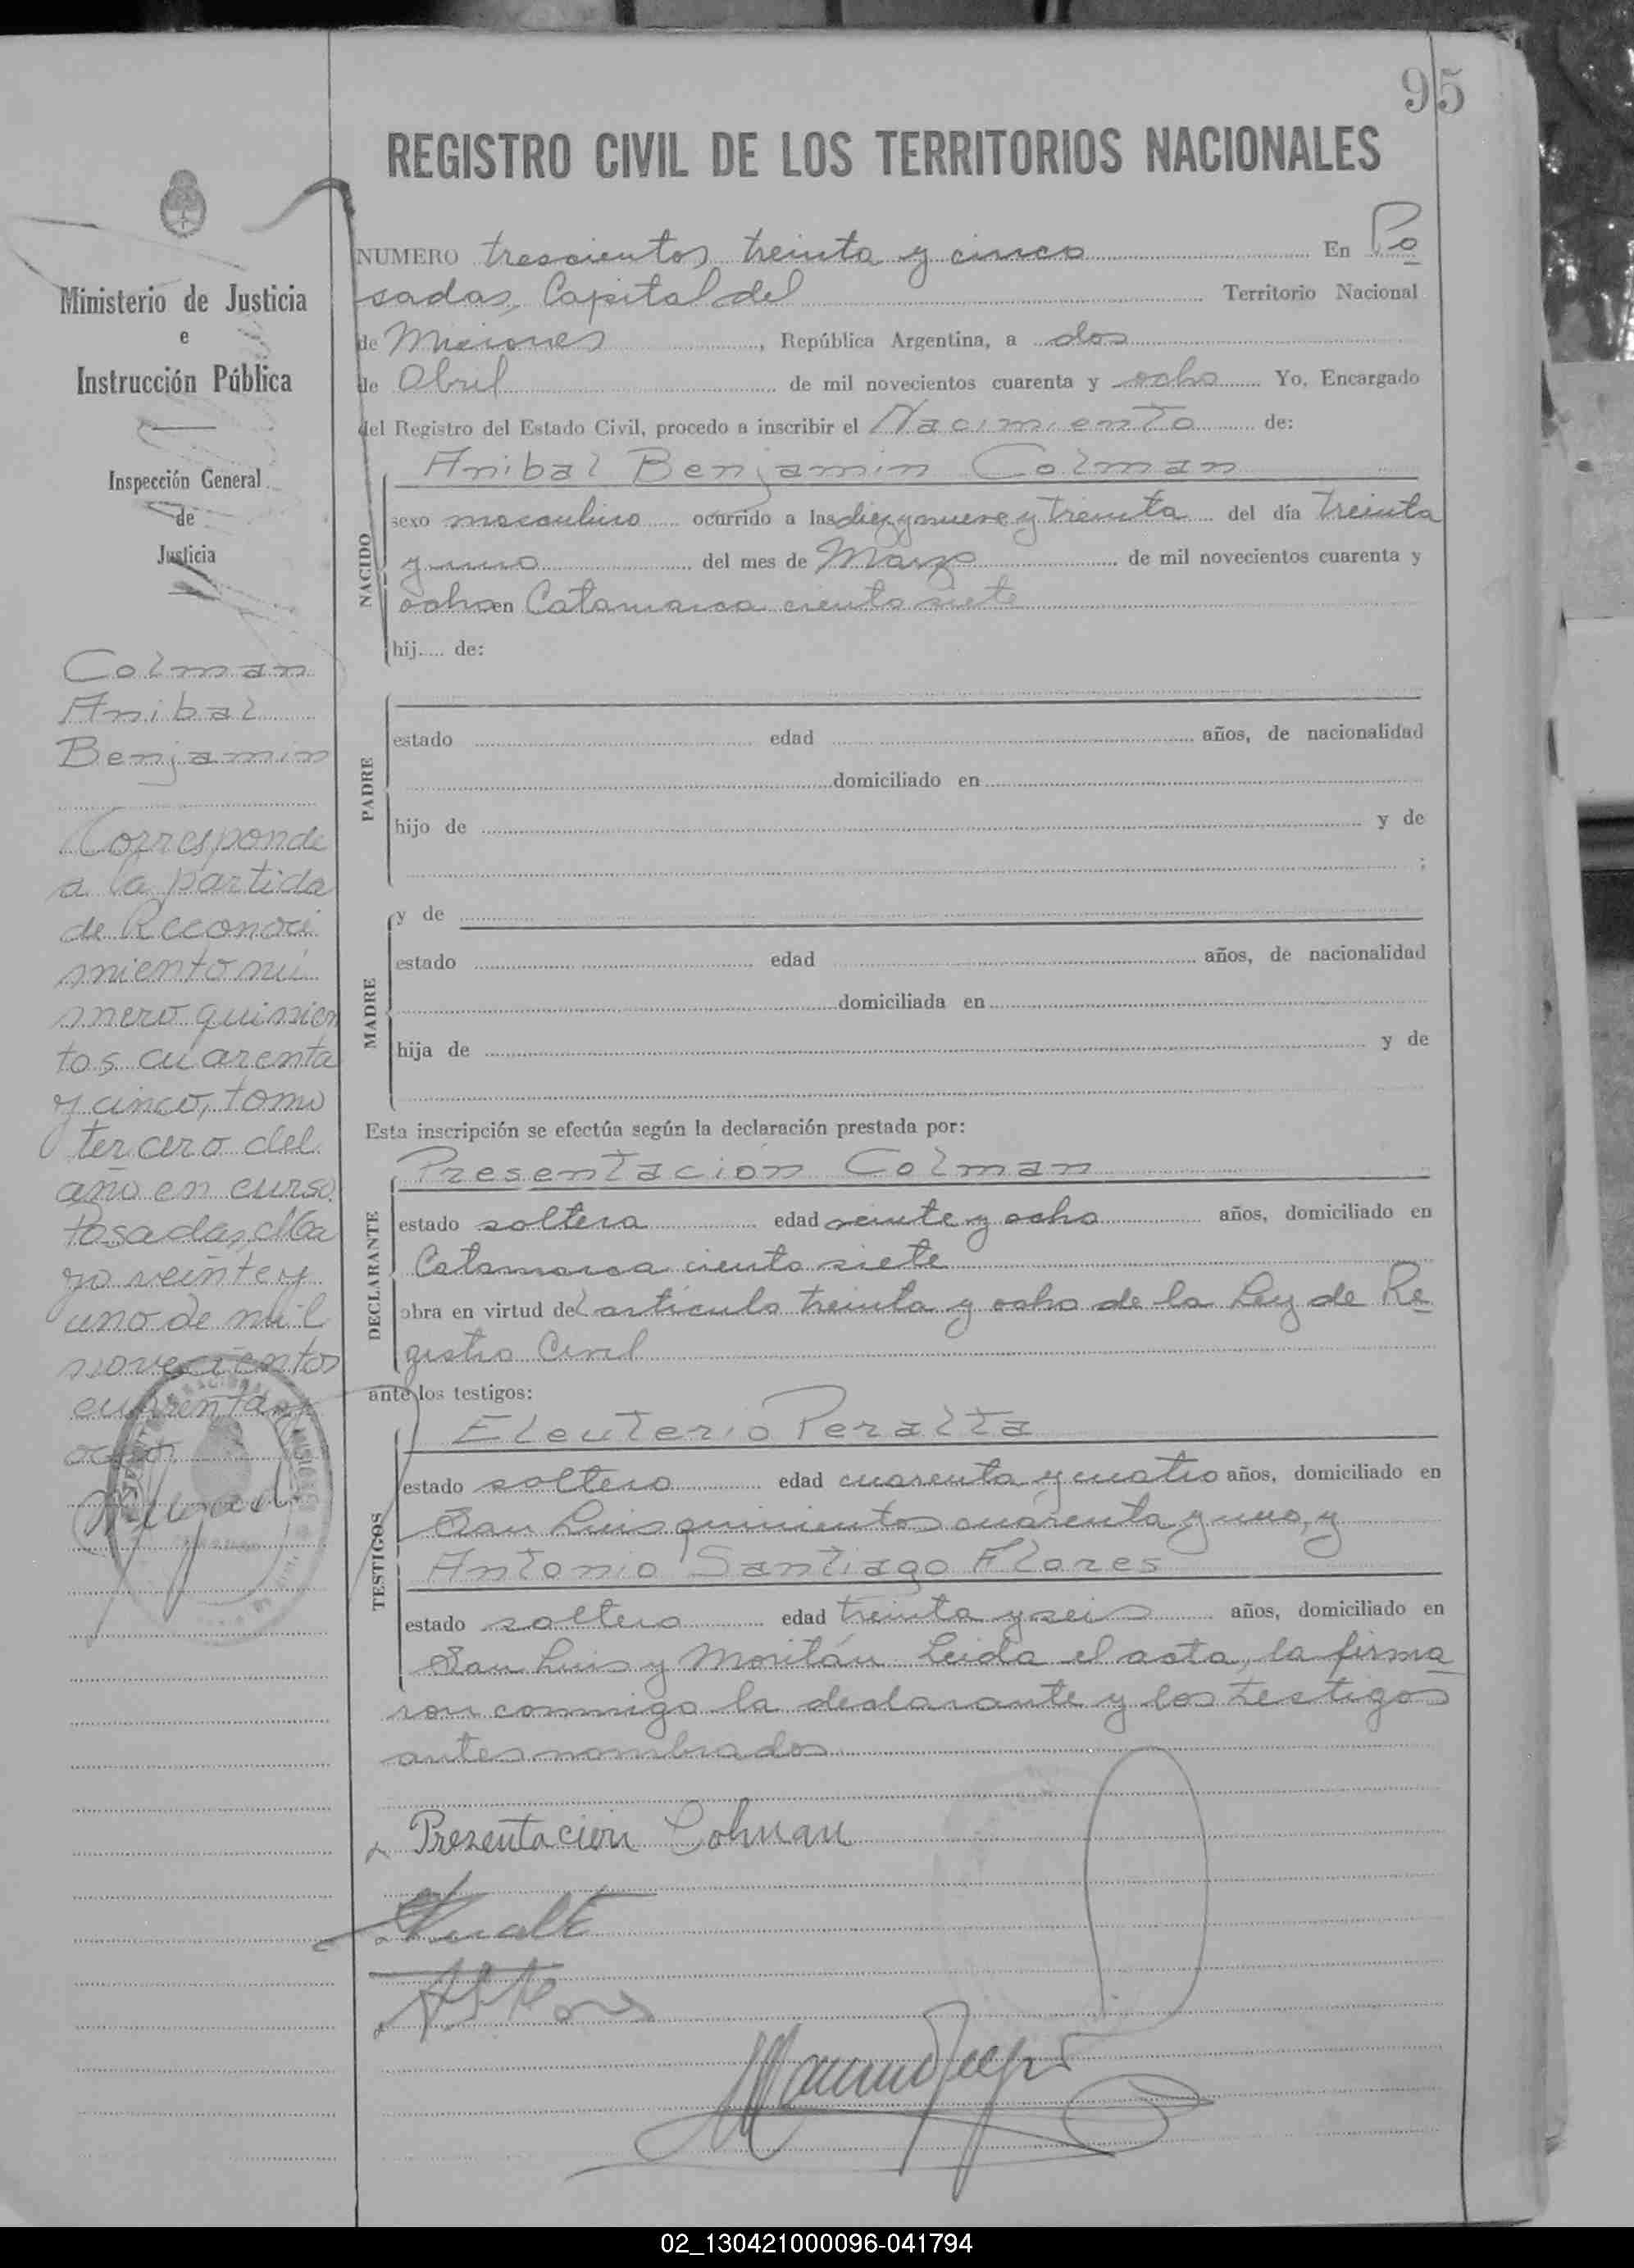 95
REGISTRO CIVIL DE LOS TERRITORIOS NACIONALES
NUMERO trescientos treinta y cinco En Po
sadas, Capital del Territorio Nacional
de Misiones, República Argentina, a dos
de Abril de mil novecientos cuarenta y ocho Yo, Encargado
del Registro del Estado Civil, procedo a inscribir el Nacimiento de:
Anibal Benjamin Colman
NACIDO
sexo masculino ocurrido a las diez y nueve y treinta del día treinta
y uno del mes de Marzo de mil novecientos cuarenta y
ocho en Catamarca ciento siete
hij.... de:
PADRE
estado edad años, de nacionalidad
domiciliado en
hijo de y de
;
MADRE
y de
estado edad años, de nacionalidad
domiciliada en
hija de y de
Esta inscripción se efectúa según la declaración prestada por:
Presentación Colman
DECLARANTE
estado soltera edad veinte y ocho años, domiciliado en
Catamarca ciento siete
obra en virtud del artículo treinta y ocho de la Ley de Re
gistro Civil
ante los testigos:
Eleuterio Peralta
TESTIGOS
estado soltero edad cuarenta y cuatro años, domiciliado en
San Luis quinientos cuarenta y uno, y
Antonio Santiago Flores
estado soltero edad treinta y seis años, domiciliado en
San Luis y Moritán. Leida el acta, la firma
ron conmigo la declarante y los testigos
antes nombrados
Presentacion Colman
Ministerio de Justicia
e
Instrucción Pública
Inspección General
de
Justicia
Colman
Anibal
Benjamin
Corresponde
a la partida
de Reconoci
miento nú
mero quinien
tos cuarenta
y cinco, tomo
tercero del
año en curso.
Posadas, Ma
yo veinte y
uno de mil
novecientos
cuarenta y
ocho.
02_130421000096-041794